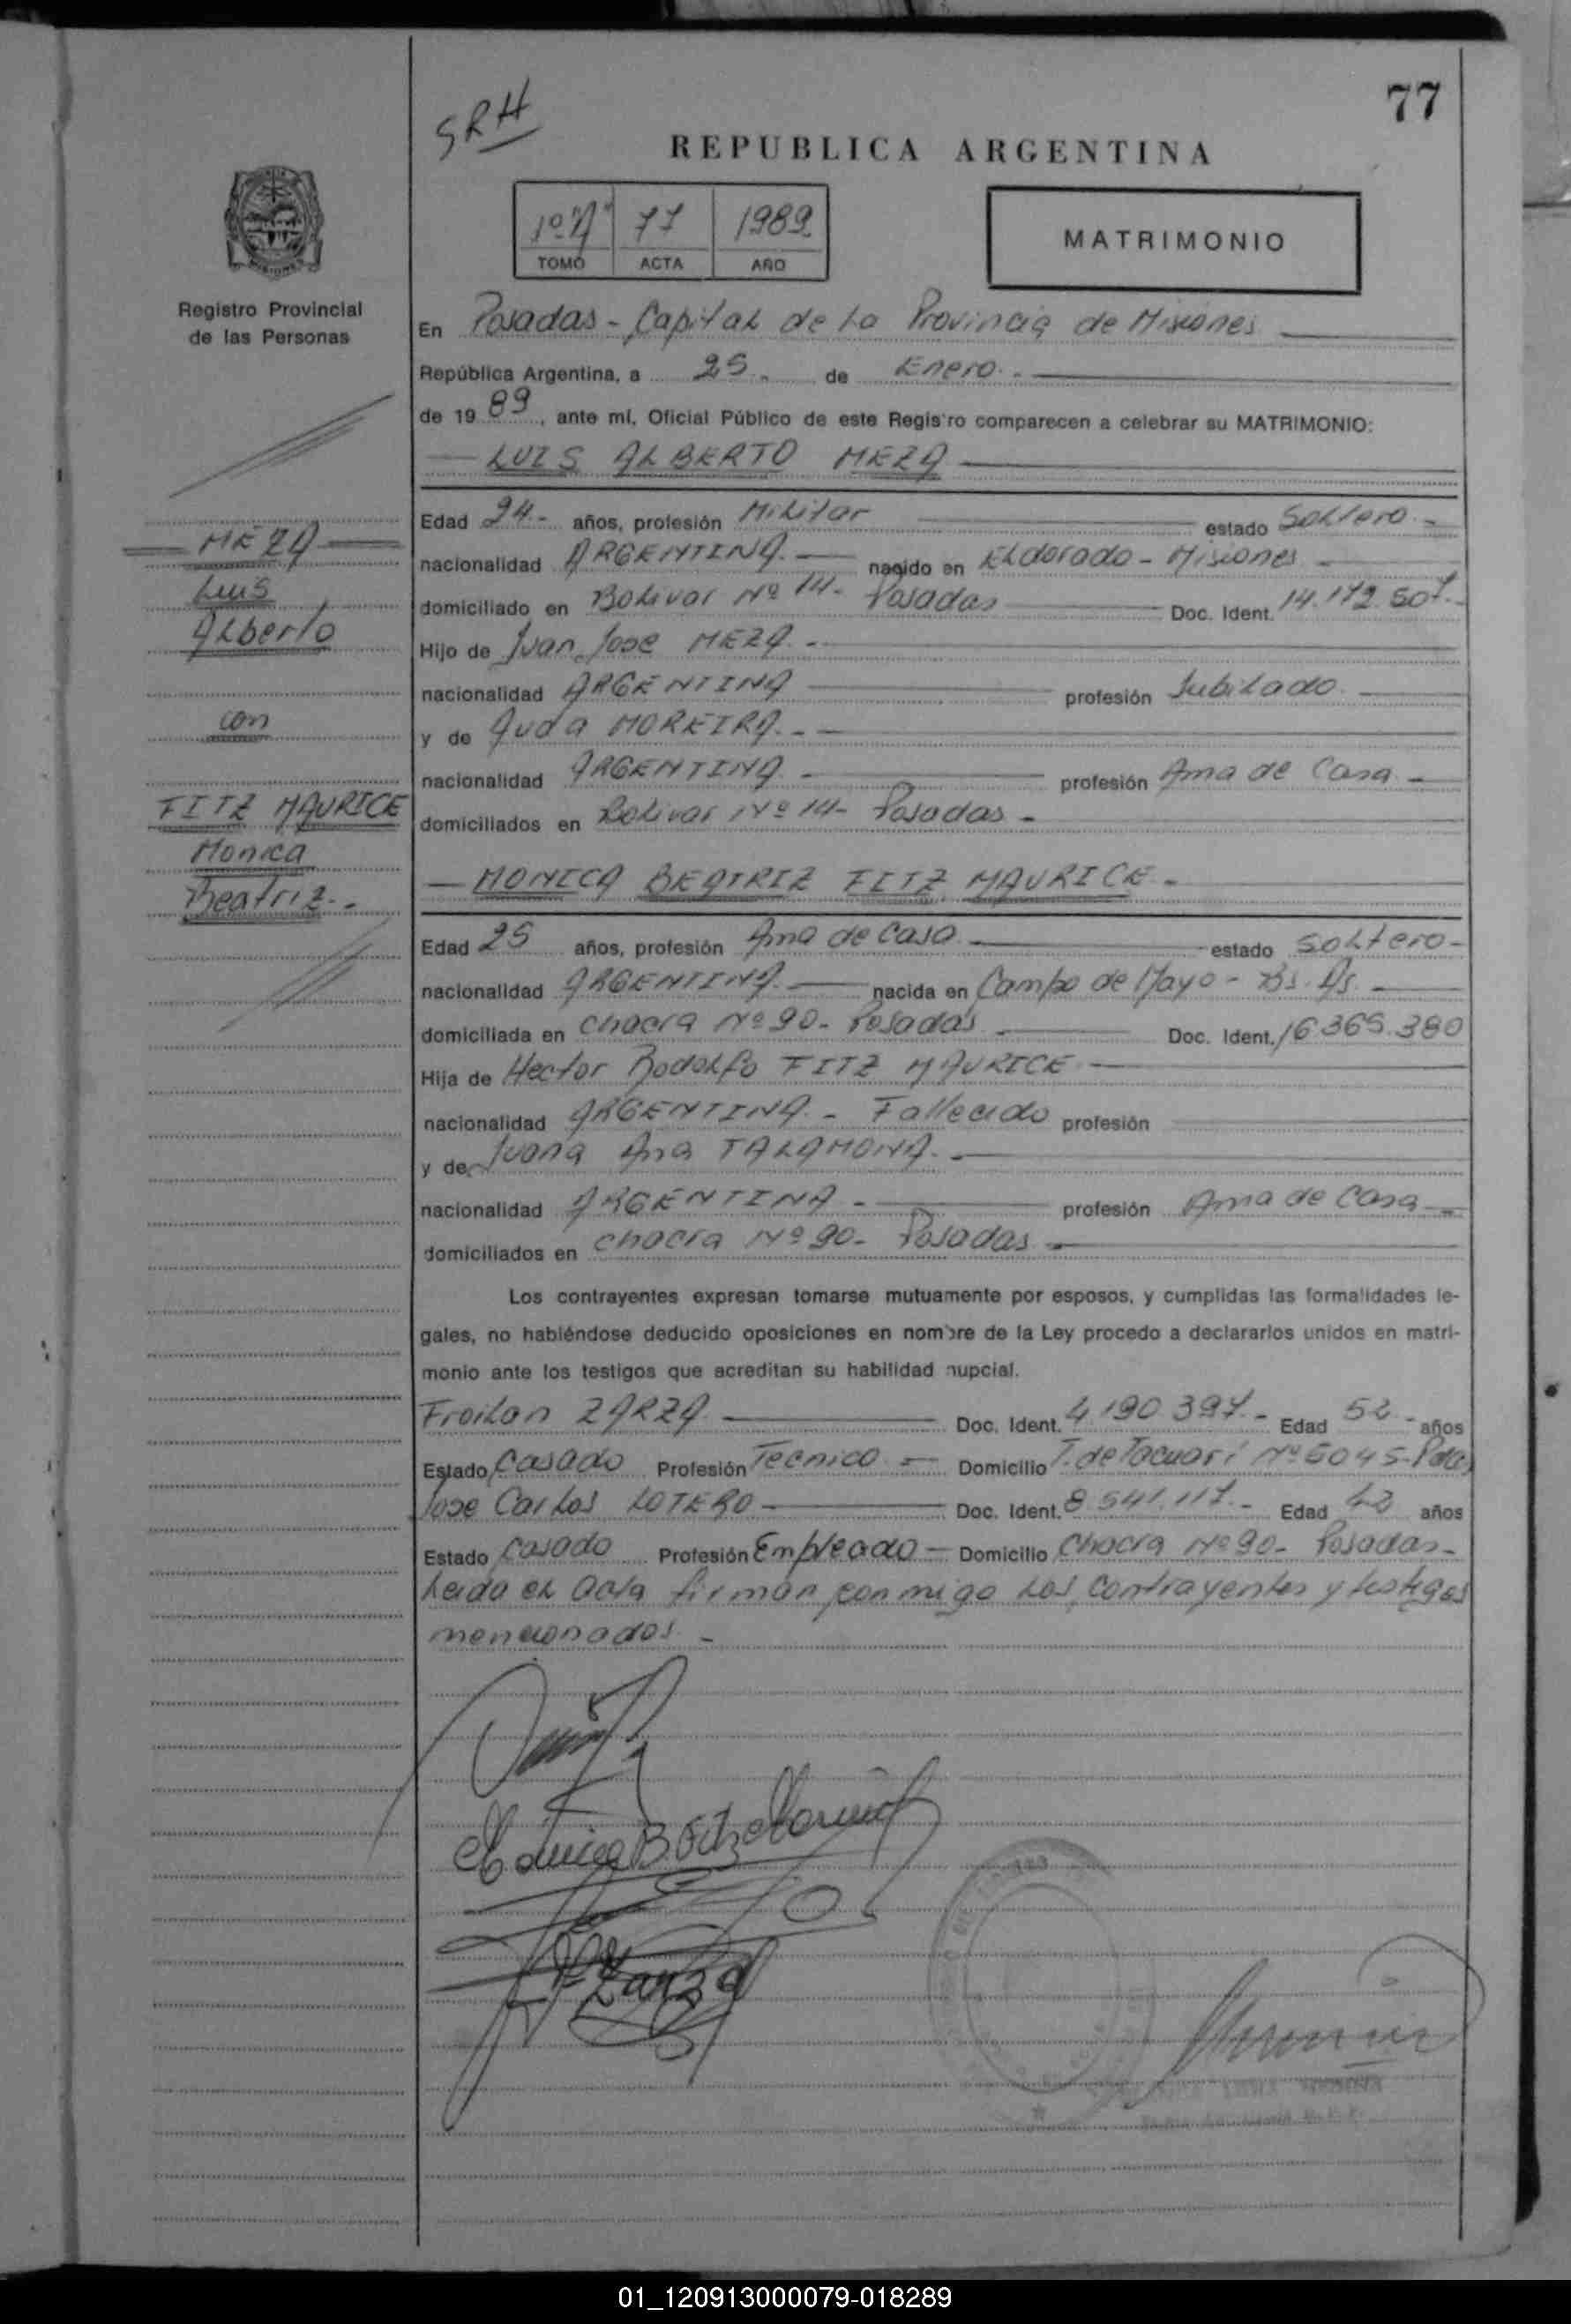 77
SRH
REPUBLICA ARGENTINA
1º "A" 77 1989
TOMO ACTA AÑO
MATRIMONIO
Registro Provincial
de las Personas
En Posadas - Capital de la Provincia de Misiones
República Argentina, a 25 de Enero
de 1989, ante mí, Oficial Público de este Registro comparecen a celebrar su MATRIMONIO:
LUIS ALBERTO MEZA
Edad 24 años, profesión Militar estado Soltero
nacionalidad ARGENTINA nacido en Eldorado - Misiones
domiciliado en Bolivar Nº 14 - Posadas Doc. Ident. 14.172.507
Hijo de Juan Jose MEZA
nacionalidad ARGENTINA profesión Jubilado
y de Auda MOREIRA
nacionalidad ARGENTINA profesión Ama de Casa
domiciliados en Bolivar Nº 14 - Posadas
MONICA BEATRIZ FITZ MAURICE
Edad 25 años, profesión Ama de Casa estado Soltero
nacionalidad ARGENTINA nacida en Campo de Mayo - Bs. As.
domiciliada en Chacra Nº 90 - Posadas Doc. Ident. 16.365.380
Hija de Hector Rodolfo FITZ MAURICE
nacionalidad ARGENTINA - Fallecido profesión
y de Juana Ana TALAMONA
nacionalidad ARGENTINA profesión Ama de Casa
domiciliados en Chacra Nº 90 - Posadas
Los contrayentes expresan tomarse mutuamente por esposos, y cumplidas las formalidades le-
gales, no habiéndose deducido oposiciones en nombre de la Ley procedo a declararlos unidos en matri-
monio ante los testigos que acreditan su habilidad nupcial.
Froilan ZARZA Doc. Ident. 4.190.397 Edad 52 años
Estado Casado Profesión Tecnico Domicilio T. de Tacuari Nº 5045 - Pdas
Jose Carlos LOTERO Doc. Ident. 8.541.117 Edad 42 años
Estado Casado Profesión Empleado Domicilio Chacra Nº 90 - Posadas
Leida el acta firman conmigo los contrayentes y testigos
mencionados
MEZA
Luis
Alberto
con
FITZ MAURICE
Monica
Beatriz
Monica B. Fitz Maurice
Zarza
01_120913000079-018289